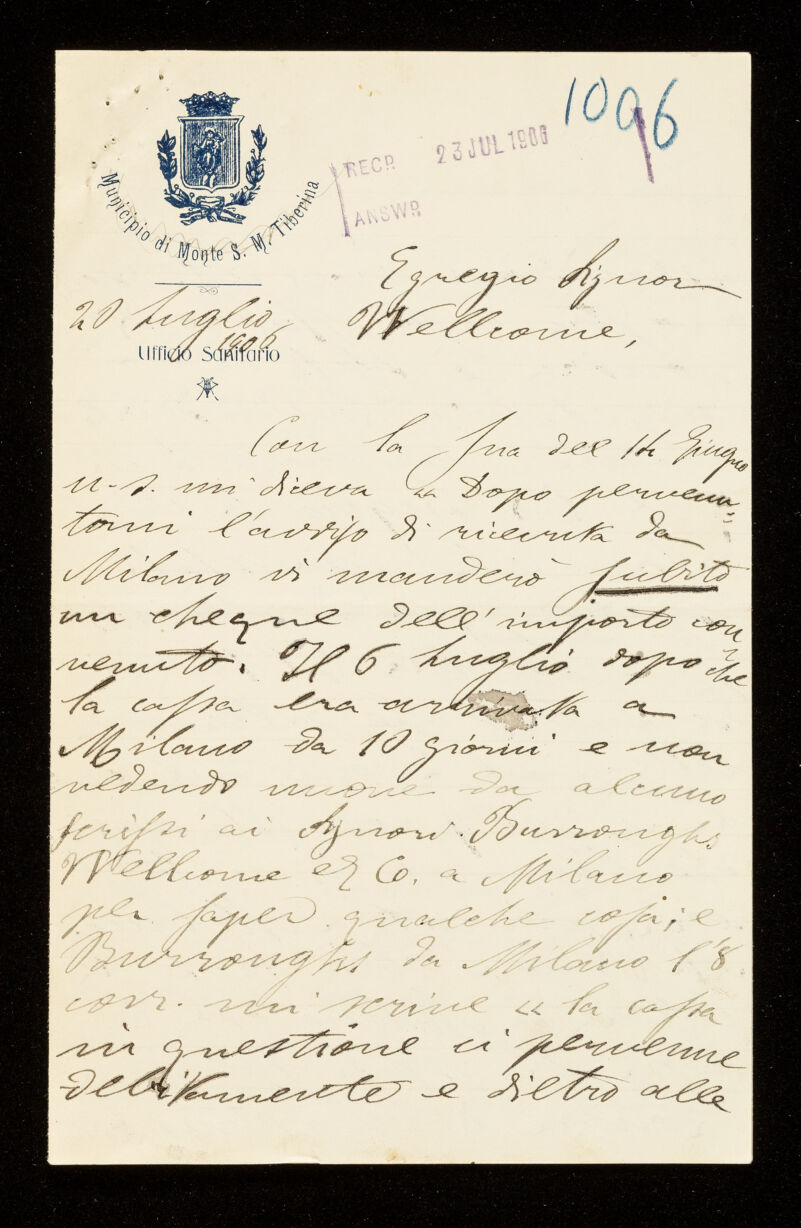 1096
RECD 23 JUL 1906
ANSWD
Municipio di Monte S. M. Tiberina
Ufficio Sanitario
20 Luglio
1906
Egregio Signor
Wellcome,
Con la sua del 14 Giugno
u. s. mi diceva « Dopo pervenu=
tomi l'avviso di ricevuta da
Milano vi manderò subito
un cheque dell'importo con
venuto. Il 6 Luglio dopo che
la cassa era arrivata a
Milano da 10 giorni e non
vedendo nuove da alcuno
scrissi ai Signori Burroughs
Wellcome et C. a Milano
per saper qualche cosa; e
Burroughs da Milano l'8
corr. mi scrive « la cassa
in questione ci pervenne
debitamente e dietro alle